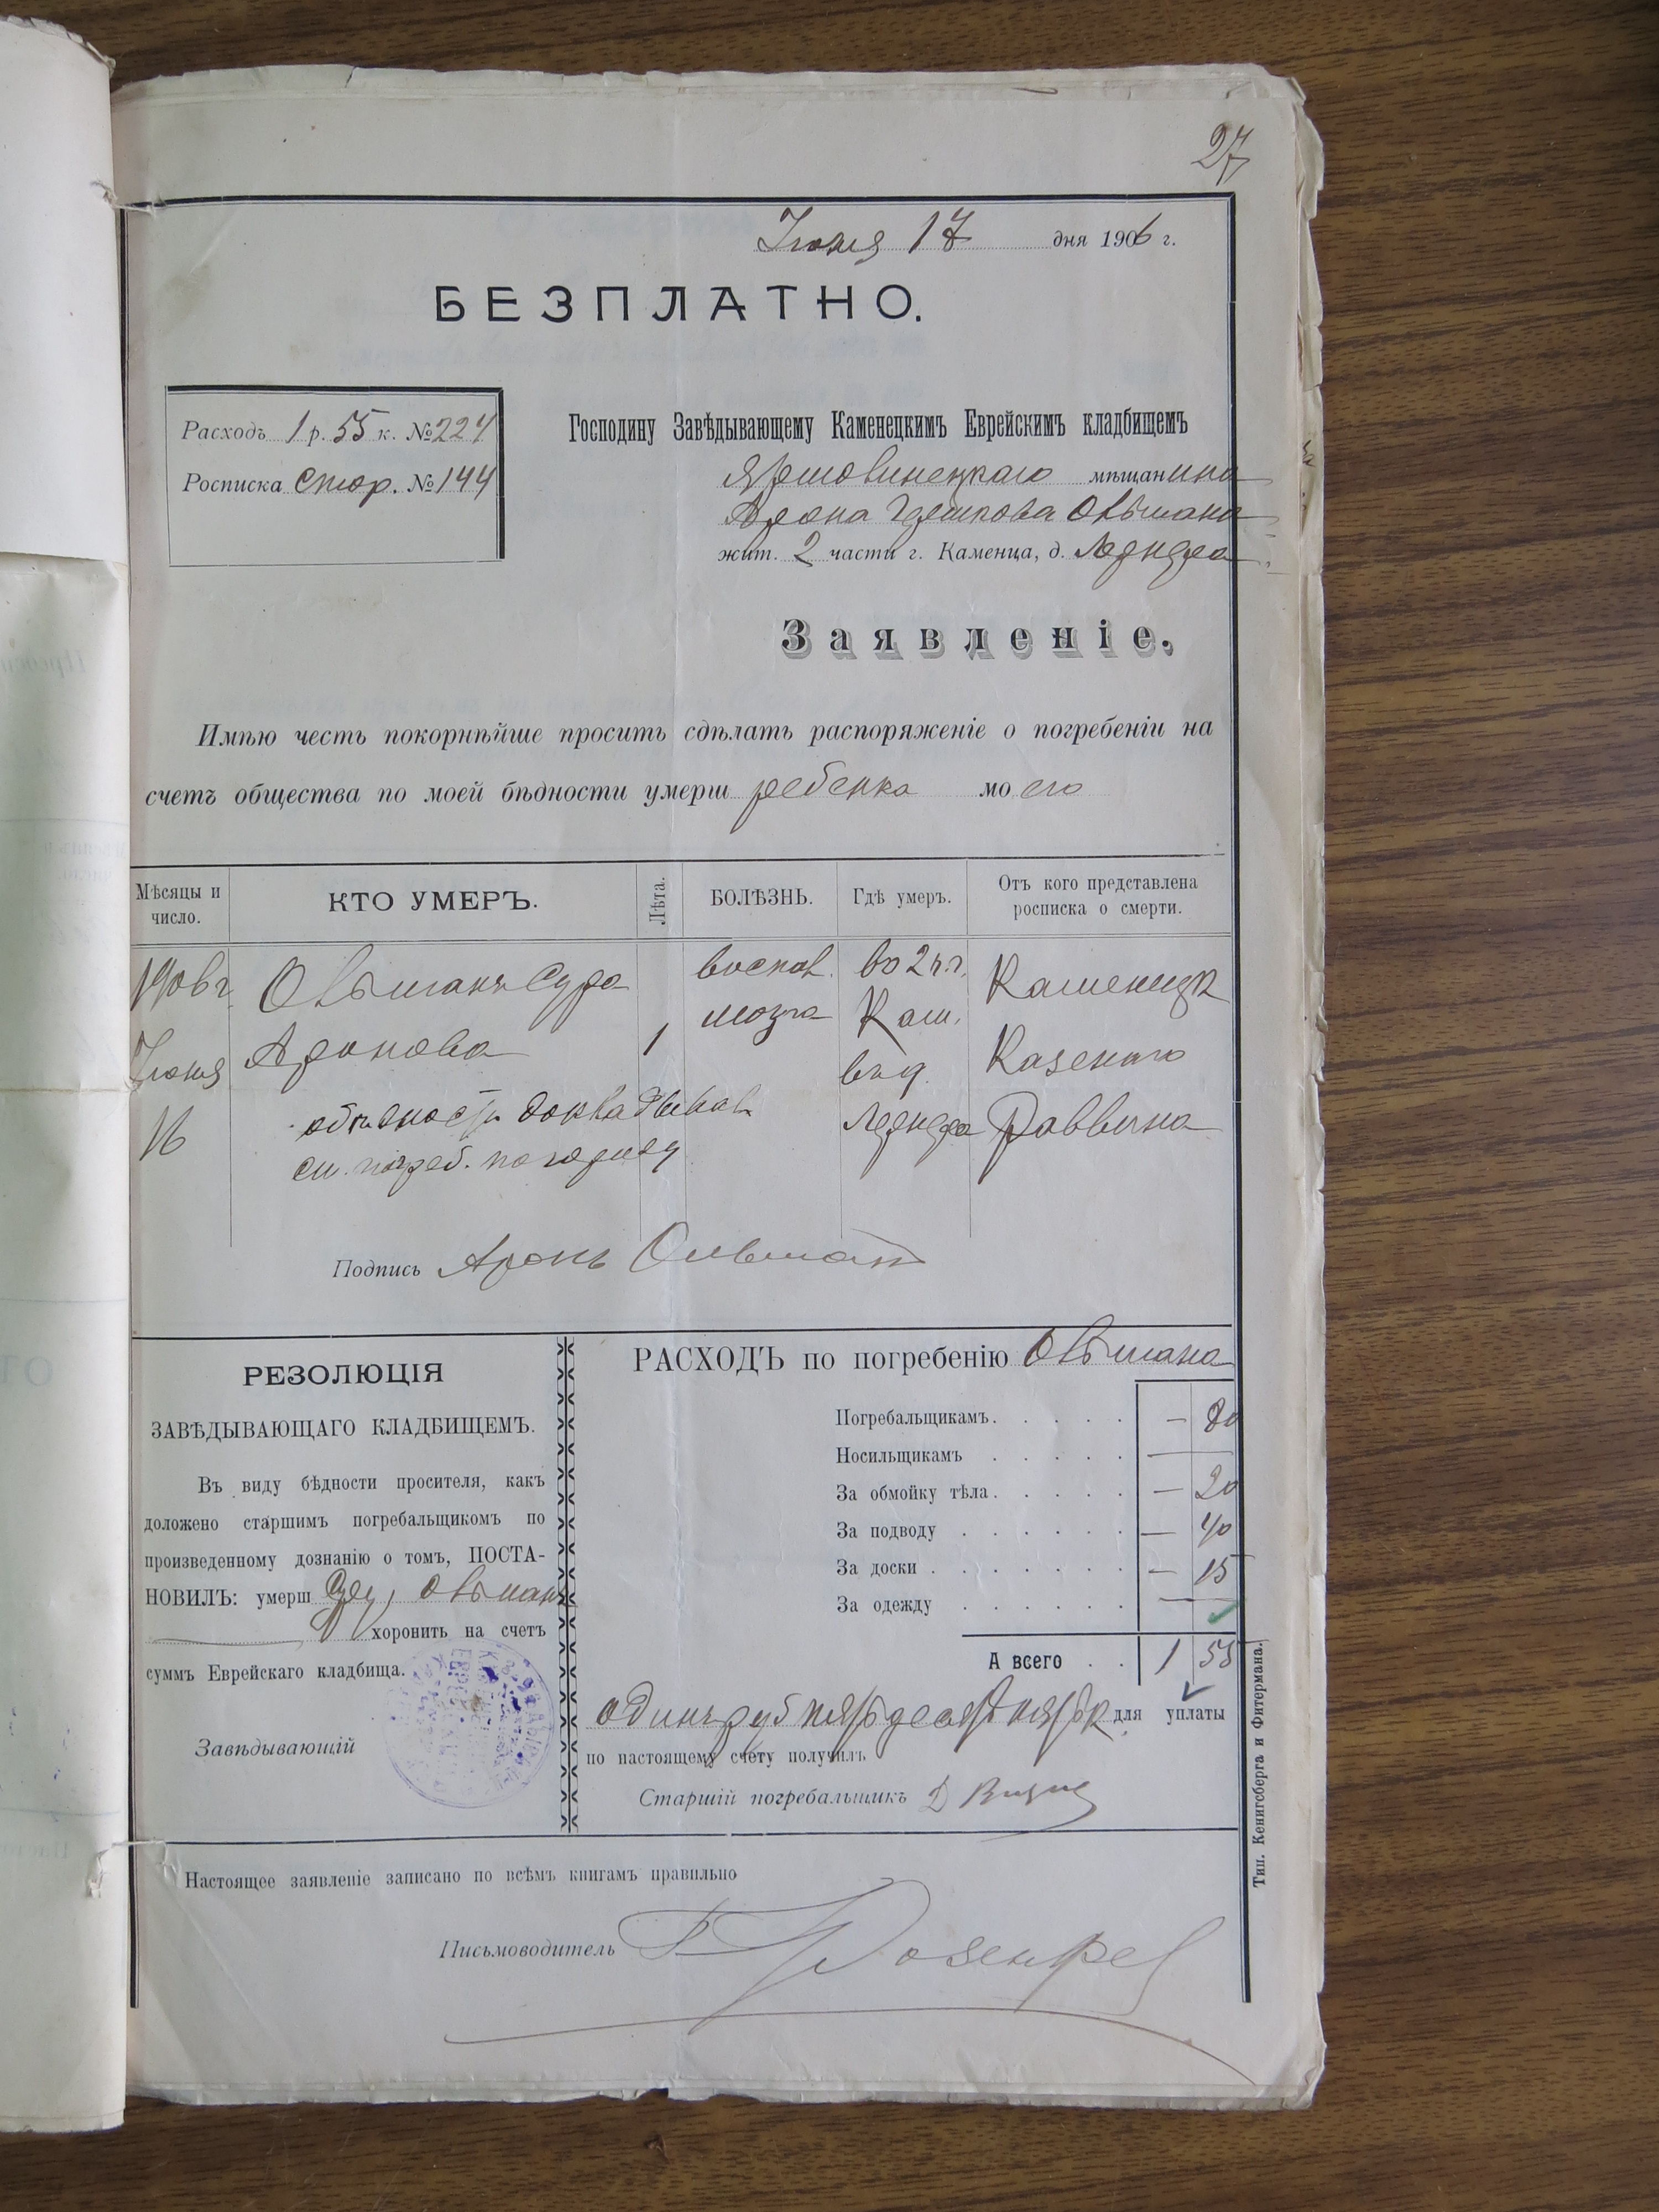 27
Іюня 17 дня 1906 г.
БЕЗПЛАТНО.
Расходъ 1 р. 55 к. № 224
Росписка стор. № 144
Господину Завѣдывающему Каменецкимъ Еврейскимъ кладбищемъ
мѣщанина
Арона Овшмана
жит. 2 части г. Каменца, д.
Заявленіе.
Имѣю честь покорнѣйше просить сдѣлать распоряженіе о погребеніи на
счетъ общества по моей бѣдности умерш ребенка моего
Мѣсяцы и число.
КТО УМЕРЪ.
Лѣта.
БОЛѢЗНЬ.
Гдѣ умеръ.
Отъ кого представлена росписка о смерти.
1906 г. Сура воспал. во 2 ч. г. Каменецк
Іюня Аронова 1 мозга Кам. Казеннаго
16 въ д. Раввина
о бѣдности
Подпись Аронъ
РЕЗОЛЮЦІЯ
ЗАВѢДЫВАЮЩАГО КЛАДБИЩЕМЪ.
Въ виду бѣдности просителя, какъ
доложено старшимъ погребальщикомъ по
произведенному дознанію о томъ, ПОСТА-
НОВИЛЪ: умерш Суру
хоронить на счетъ
суммъ Еврейскаго кладбища.
Завѣдывающій
РАСХОДЪ по погребенію
Погребальщикамъ. . . . . — 80
Носильщикамъ . . . . . —
За обмойку тѣла. . . . . — 20
За подводу . . . . . . — 40
За доски . . . . . . . — 15
За одежду . . . . . . —
А всего . . 1 55
одинъ руб пятьдесятъ пять к для уплаты
по настоящему счету получилъ
Старшій погребальщикъ Д
Настоящее заявленіе записано по всѣмъ книгамъ правильно
Письмоводитель
Тип. Кенигсберга и Фитермана.